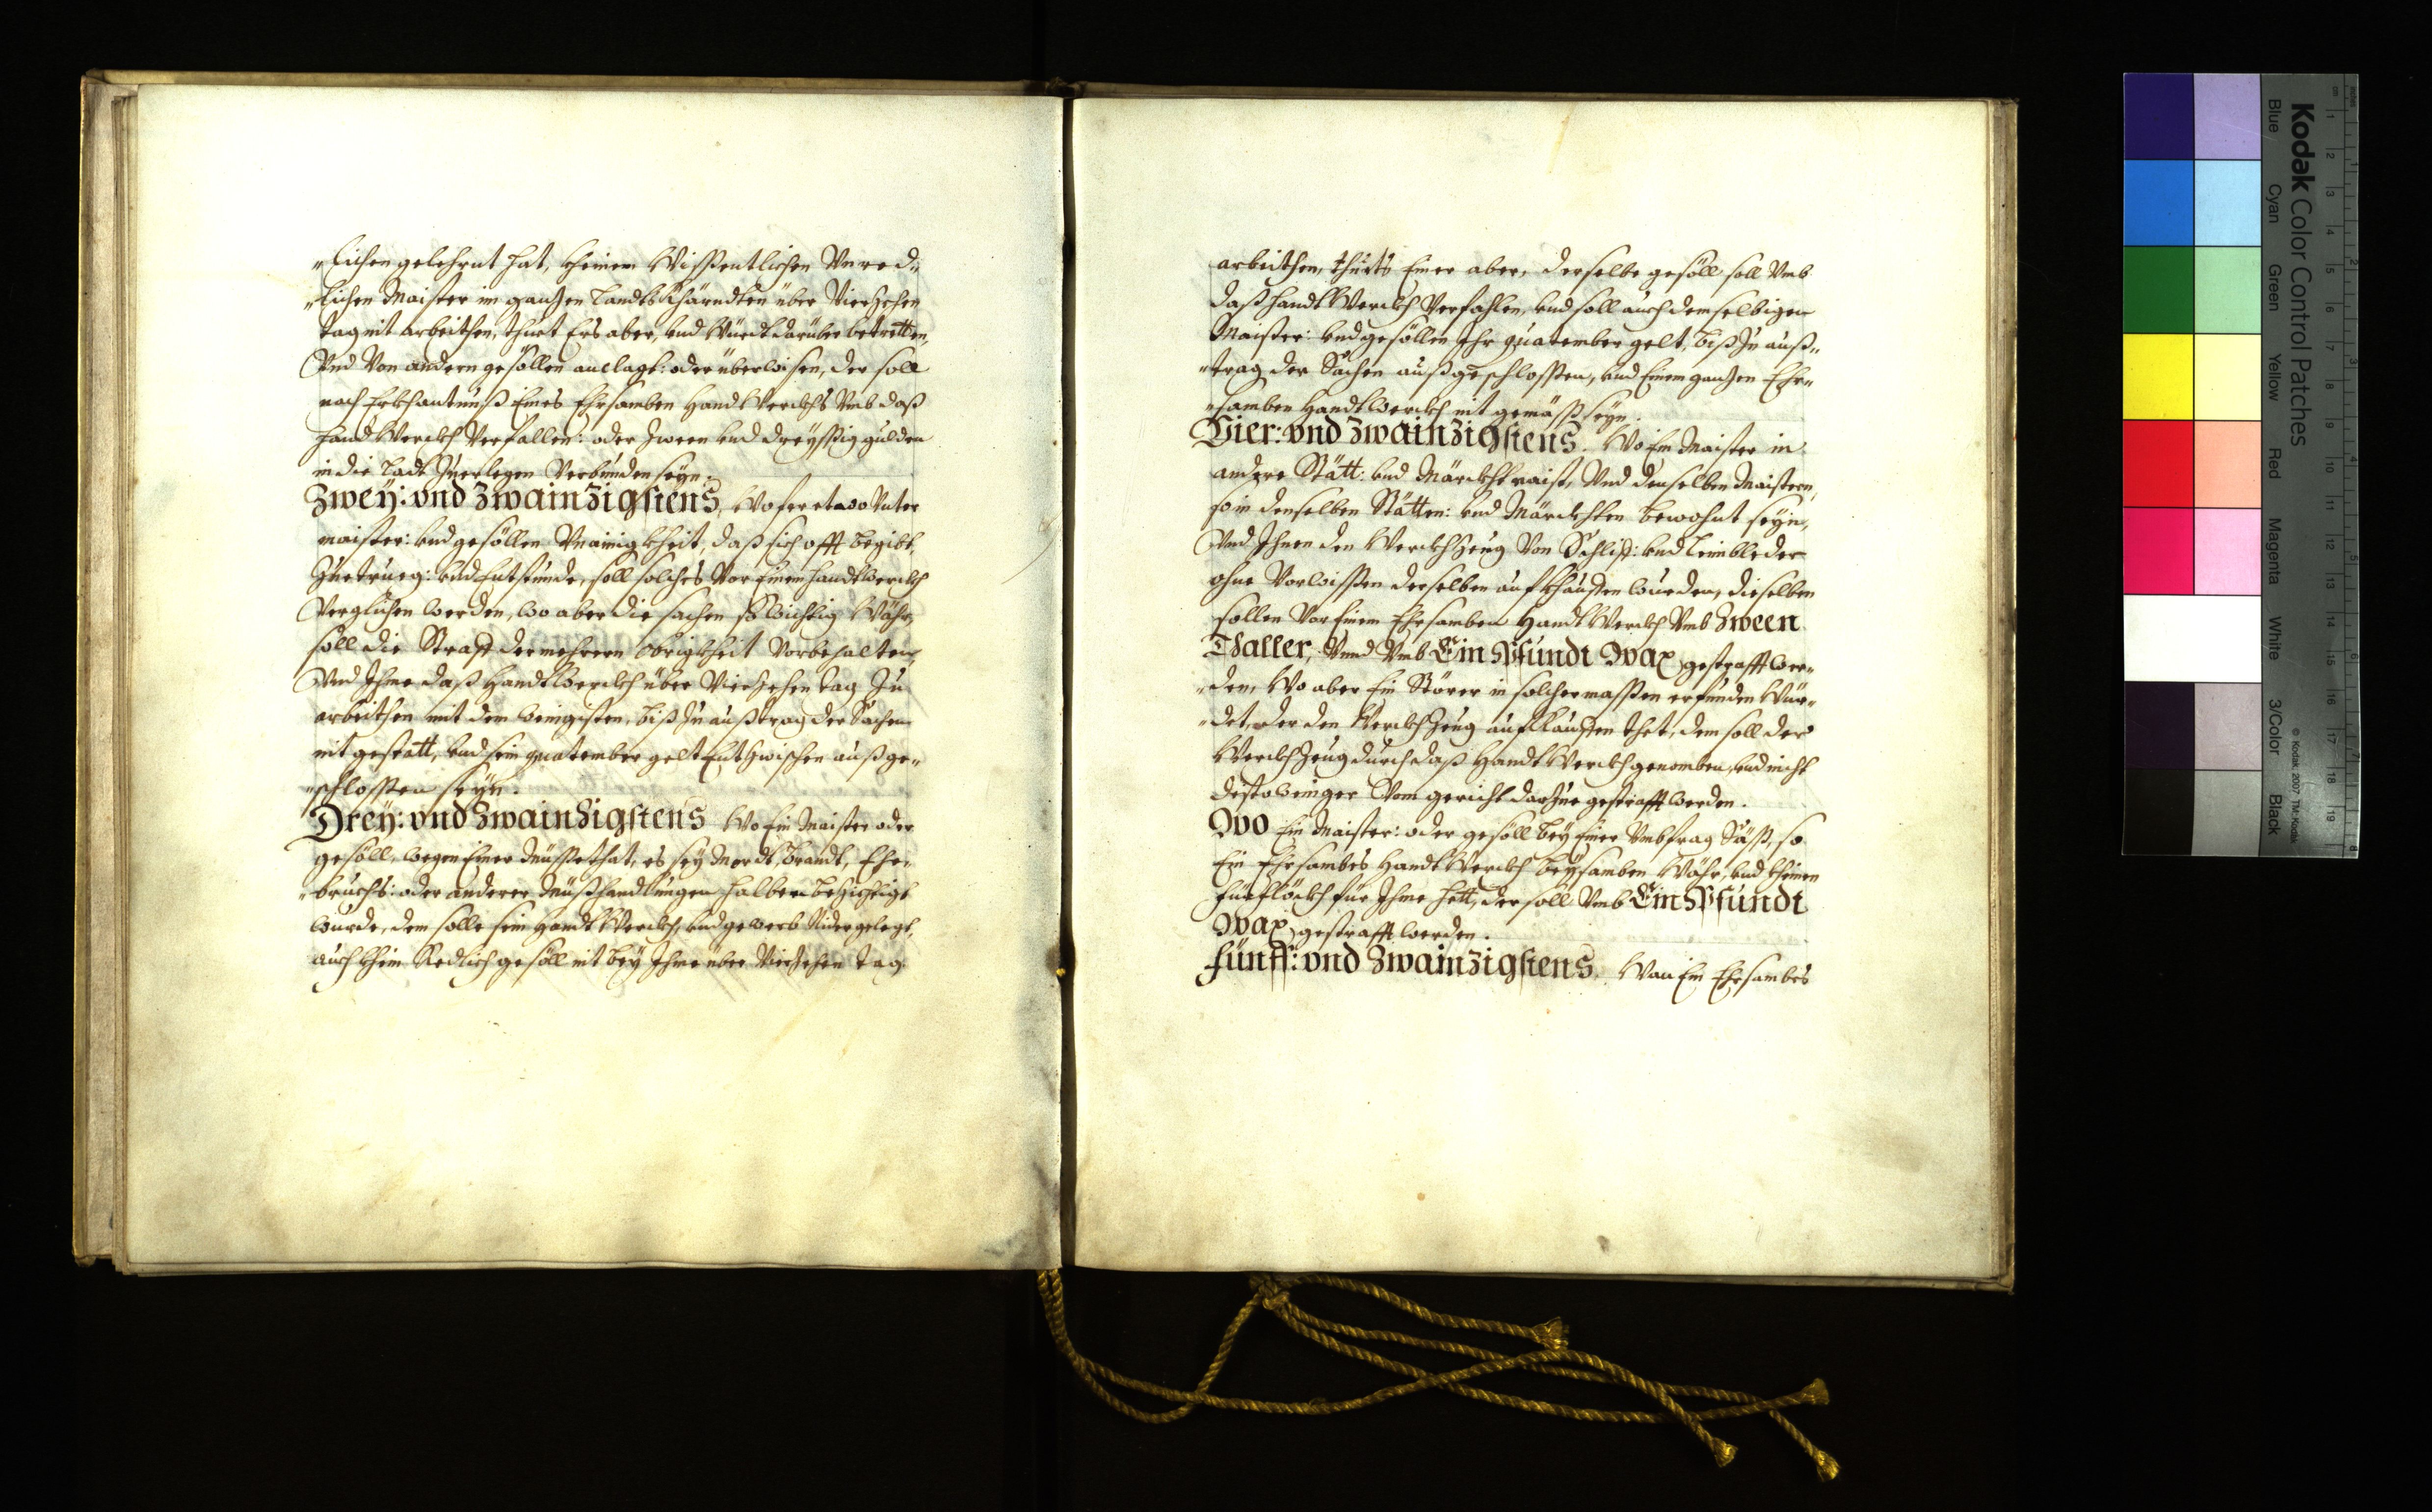 „lichen gelehrnt hat, kheinem Wissentlichen Vnred„
„lichen Maister im ganzen Landt Khärndten über Vierzehen
tag nit arbeithen, thuet Ers aber, vnd Würdt darüber betretten,
Vnd Von andern gesöllen anclagt: oder überwisen, der soll
nach Erkhantnuß Eines Ehrsamben Handtwerckhs Vmb daß
Handtwerckh Verfallen: oder Zween vnd dreyssig gulden
in die Ladt Zuerlegen Verbunden seyn.
Zwey: vnd Zwainzigstens, Wofer etwo Vnter
maister: vnd gesöllen Vnainigkheit, daß sich offt begibt,
Zuetrueg: vnd Entstunde, soll solches Vor Einem Handtwerckh
Verglichen werden, wo aber die sachen so Wichtig Währ,
soll die Straff der mehrern Obrigkheit Vorbehalten,
Vnd Ihme daß Handtwerckh über Vierzehen tag Zu
arbeithen mit dem wenigisten, biß Zu außtrag der Sachen
nit gestatt, vnd sein quatember gelt Entzwischen außge„
„schlossen seyn.
Drey: vnd Zwainzigstens Wo Ein Maister oder
gesöll, wegen Einer Müssethat, es sey Mordt, Brandt, Ehe„
„bruchs: oder anderer Müßhandlungen halber bezichtigt
wurde, dem solle sein Handtwerckh, vnd gewerb Nidergelegt,
auch khein Redlich gesöll nit bey Ihme über Vierzehen tag
arbeithen, thuets Einer aber, derselbe gesöll soll Vmb
daß Handtwerckh Verfahlen, vnd soll auch demselbigen
Maister: vnd gesöllen Ihr quatember gelt, biß Zu auß„
„trag der Sachen außgeschlossen, vnd Einem ganzen Ehr„
„samben Handtwerckh nit gemäß seyn.
Vier: vnd Zwainzigstens. Wo Ein Maister in
andere Stätt: vnd Märckht raist, Vnd denselben Maistern,
so in denselben Stätten: vnd Märckhten bewohnt seyn,
Vnd Ihnen den Werckhzeug Von Schliß: vnd Leimbleder
ohne Vorwissen derselben aufkhauffen wurden, dieselben
sollen Vor Einem Ehrsamben Handtwerckh Vmb Zween
Thaller, Vnnd Vmb Ein Pfundt Wax gestrafft wer„
„den, Wo aber Ein Störer in solchermassen erfunden Wur„
„det, oder den Werckhzeug aufkhauffen thet, dem soll der
Werckhzeug durch daß Handtwerckh genomben, vnd nicht
destoweniger Vom gericht darzue gestrafft werden.
Wo Ein Maister: oder gesöll bey Einer Vmbfrag Säß, so
Ein Ehrsambes Handtwerckh beysamben Währ, vnd kheinen
fürflöckh für Ihme hett, der soll Vmb Ein Pfundt
Wax gestrafft werden.
Fünff: vnd Zwainzigstens. Wan Ein Ehrsambes
Kodak Color Control Patches
Blue Cyan Green Yellow Red Magenta White 3/Color Black
© Kodak, 2007 TM: Kodak